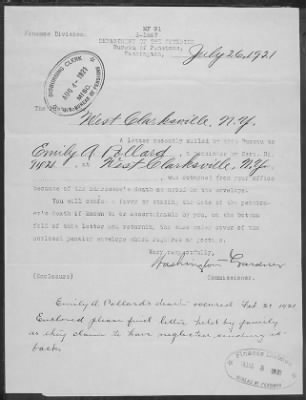 Finance Division.
DEPARTMENT OF THE INTERIOR
Bureau of Pensions,
Washington,
July 26, 1921
DISBURSING CLERK
AUG 4 1921
BUREAU OF PENSIONS
West Clarksville, N.Y.
A letter recently mailed by this Bureau to
Emily A. Pollard, a pensioner by Cert. No.
at West Clarksville, N.Y.
was returned from your office
because of the addressee's death as noted on the envelope.
You will confer a favor by stating the date of the pension-
er's death if known to or ascertainable by you, at the bottom
fold of this letter and returning the same under cover of the
enclosed penalty envelope which requires no postage.
Very respectfully,
Washington Gardner
Commissioner.
(Enclosure)
Emily A. Pollard's death occured Feb 21 1921
Enclosed please find letter held by family
as they claim to have neglected sending it
back
Finance Division
BUREAU OF PENSIONS